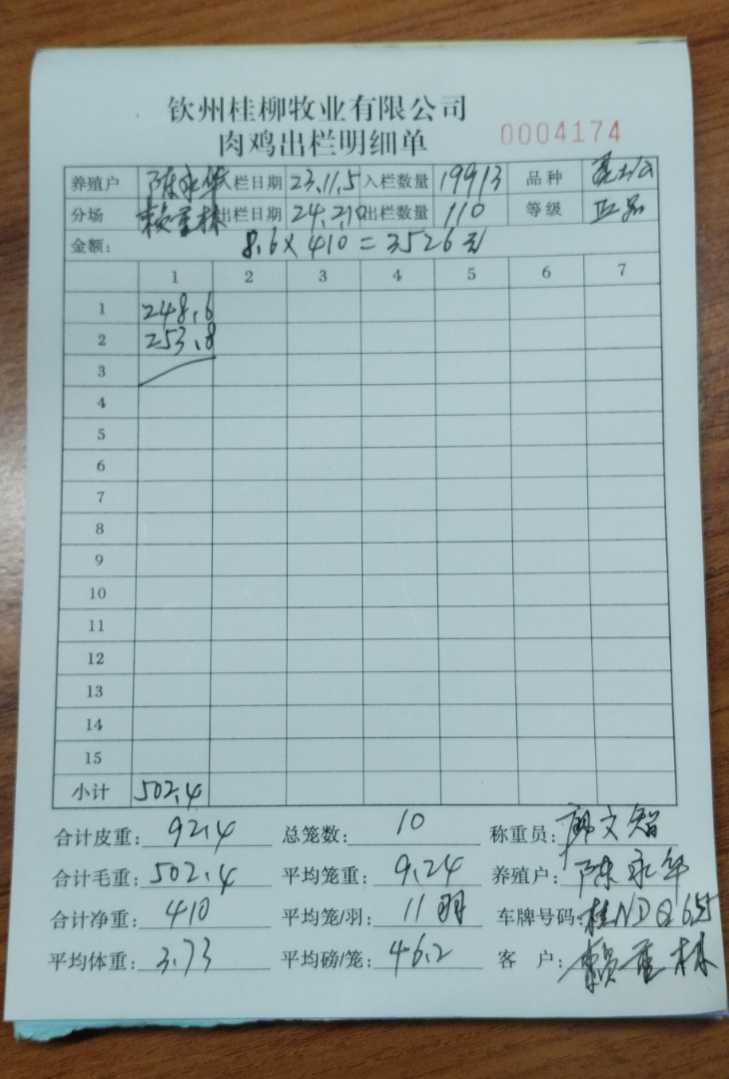 钦州桂柳牧业有限公司
肉鸡出栏明细单 0004174
养殖户 陈永华 入栏日期 23.11.5 入栏数量 19913 品种
分场 赖重林 出栏日期 24.2.10 出栏数量 110 等级 正品
金额: 8.6×410=3526元
1 2 3 4 5 6 7
1 248.6
2 253.8
3
4
5
6
7
8
9
10
11
12
13
14
15
小计 502.4
合计皮重: 92.4 总笼数: 10 称重员: 文智
合计毛重: 502.4 平均笼重: 9.24 养殖户: 陈永华
合计净重: 410 平均笼/羽: 11羽 车牌号码: 桂NDQ
平均体重: 3.73 平均磅/笼: 46.2 客户: 赖重林